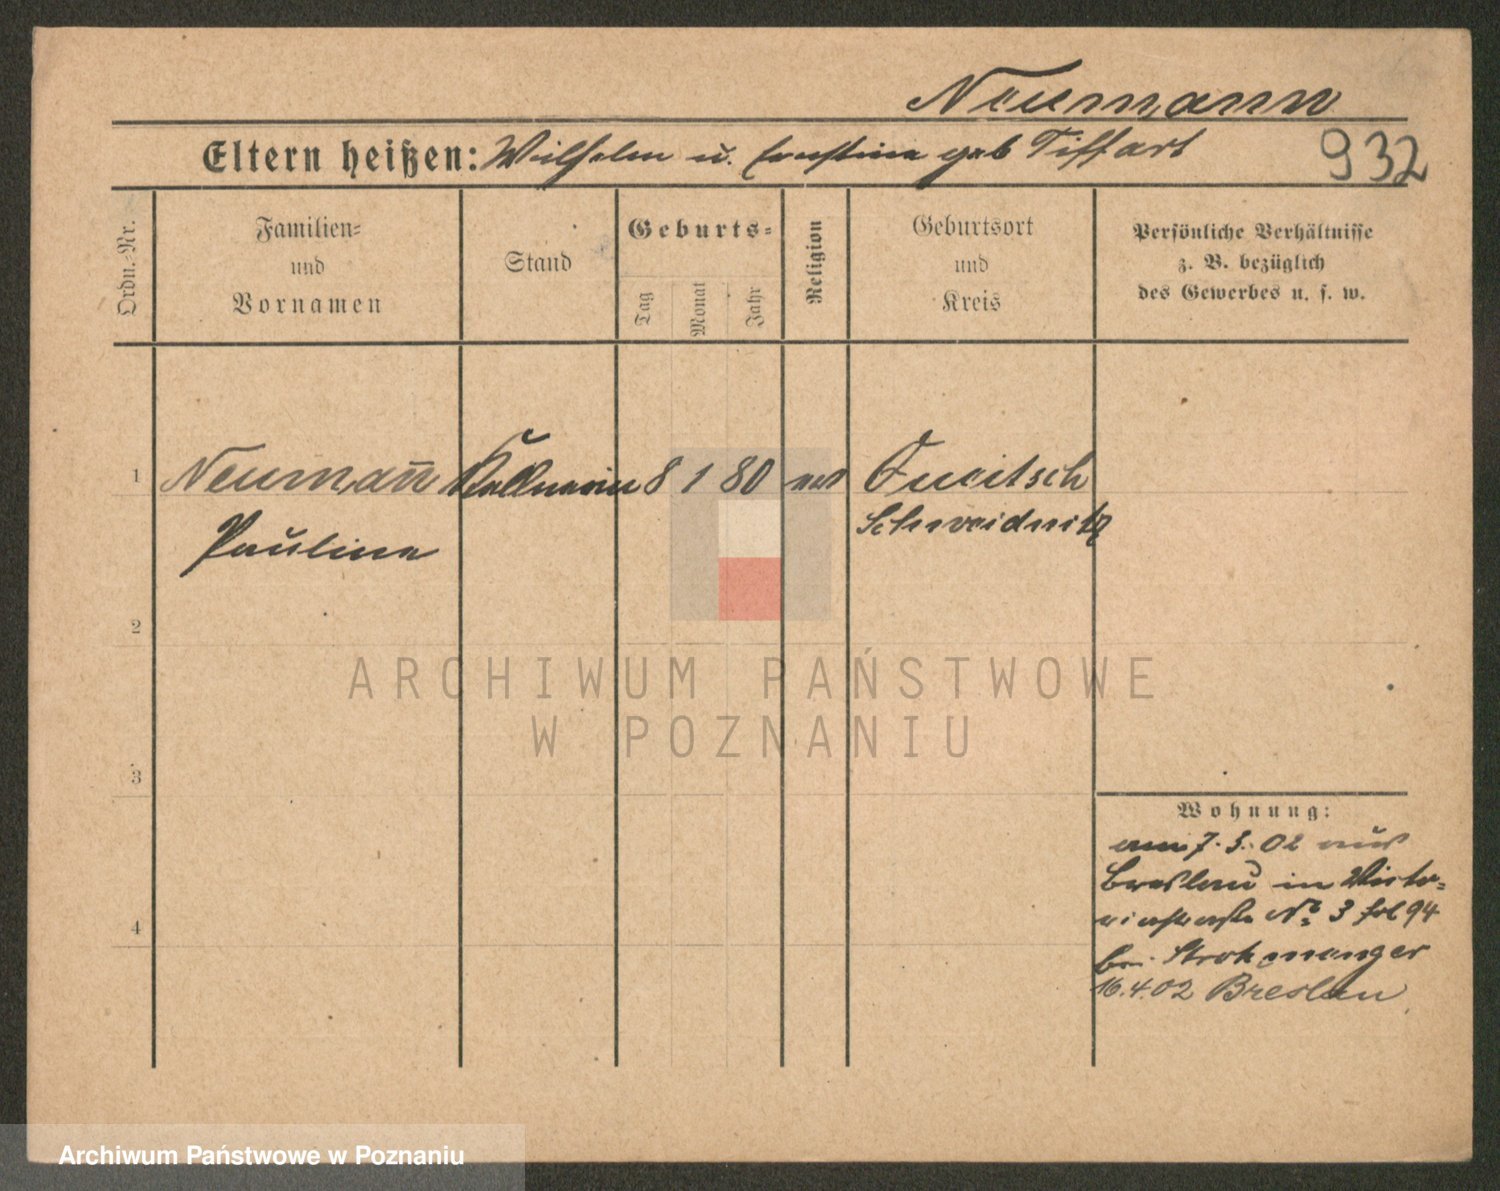 Neumann
Eltern heißen: Wilhelm u. Ernstine geb Tiffart
932
Ordn.-Nr.
Familien-
und
Vornamen
Stand
Geburts-
Tag
Monat
Jahr
Religion
Geburtsort
und
Kreis
Persönliche Verhältnisse
z. B. bezüglich
des Gewerbes u. s. w.
1 Neumann̄ Kellnerin 8 1 80
Pauline Schweidnitz
2
ARCHIWUM PAŃSTWOWE
W POZNANIU
3
Wohnung:
am 7.3.02 aus
Breslau in Victo-
riastraße No 3 94
bei Strohmanger
4
16.4.02 Breslau
Archiwum Państwowe w Poznaniu